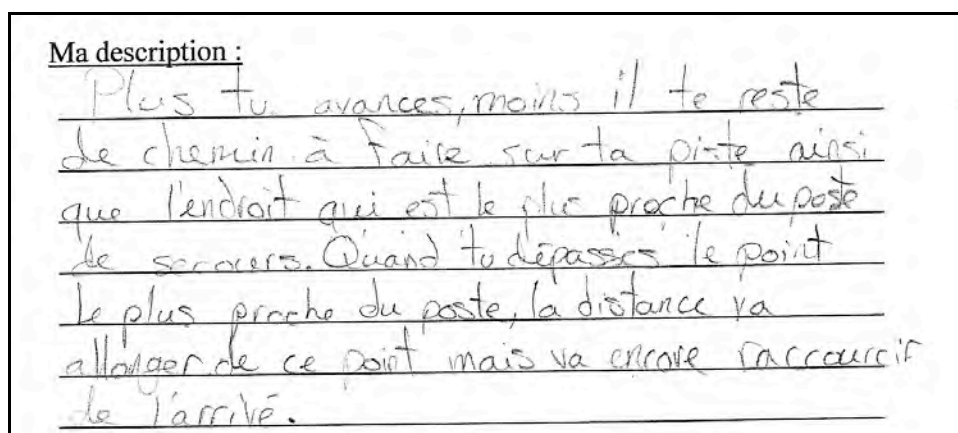 Ma description :
Plus tu avances, moins il te reste
de chemin à faire sur ta piste ainsi
que l'endroit qui est le plus proche du poste
de secours. Quand tu dépasses le point
le plus proche du poste, la distance va
allonger de ce point mais va encore raccourcir
de l'arrivé.